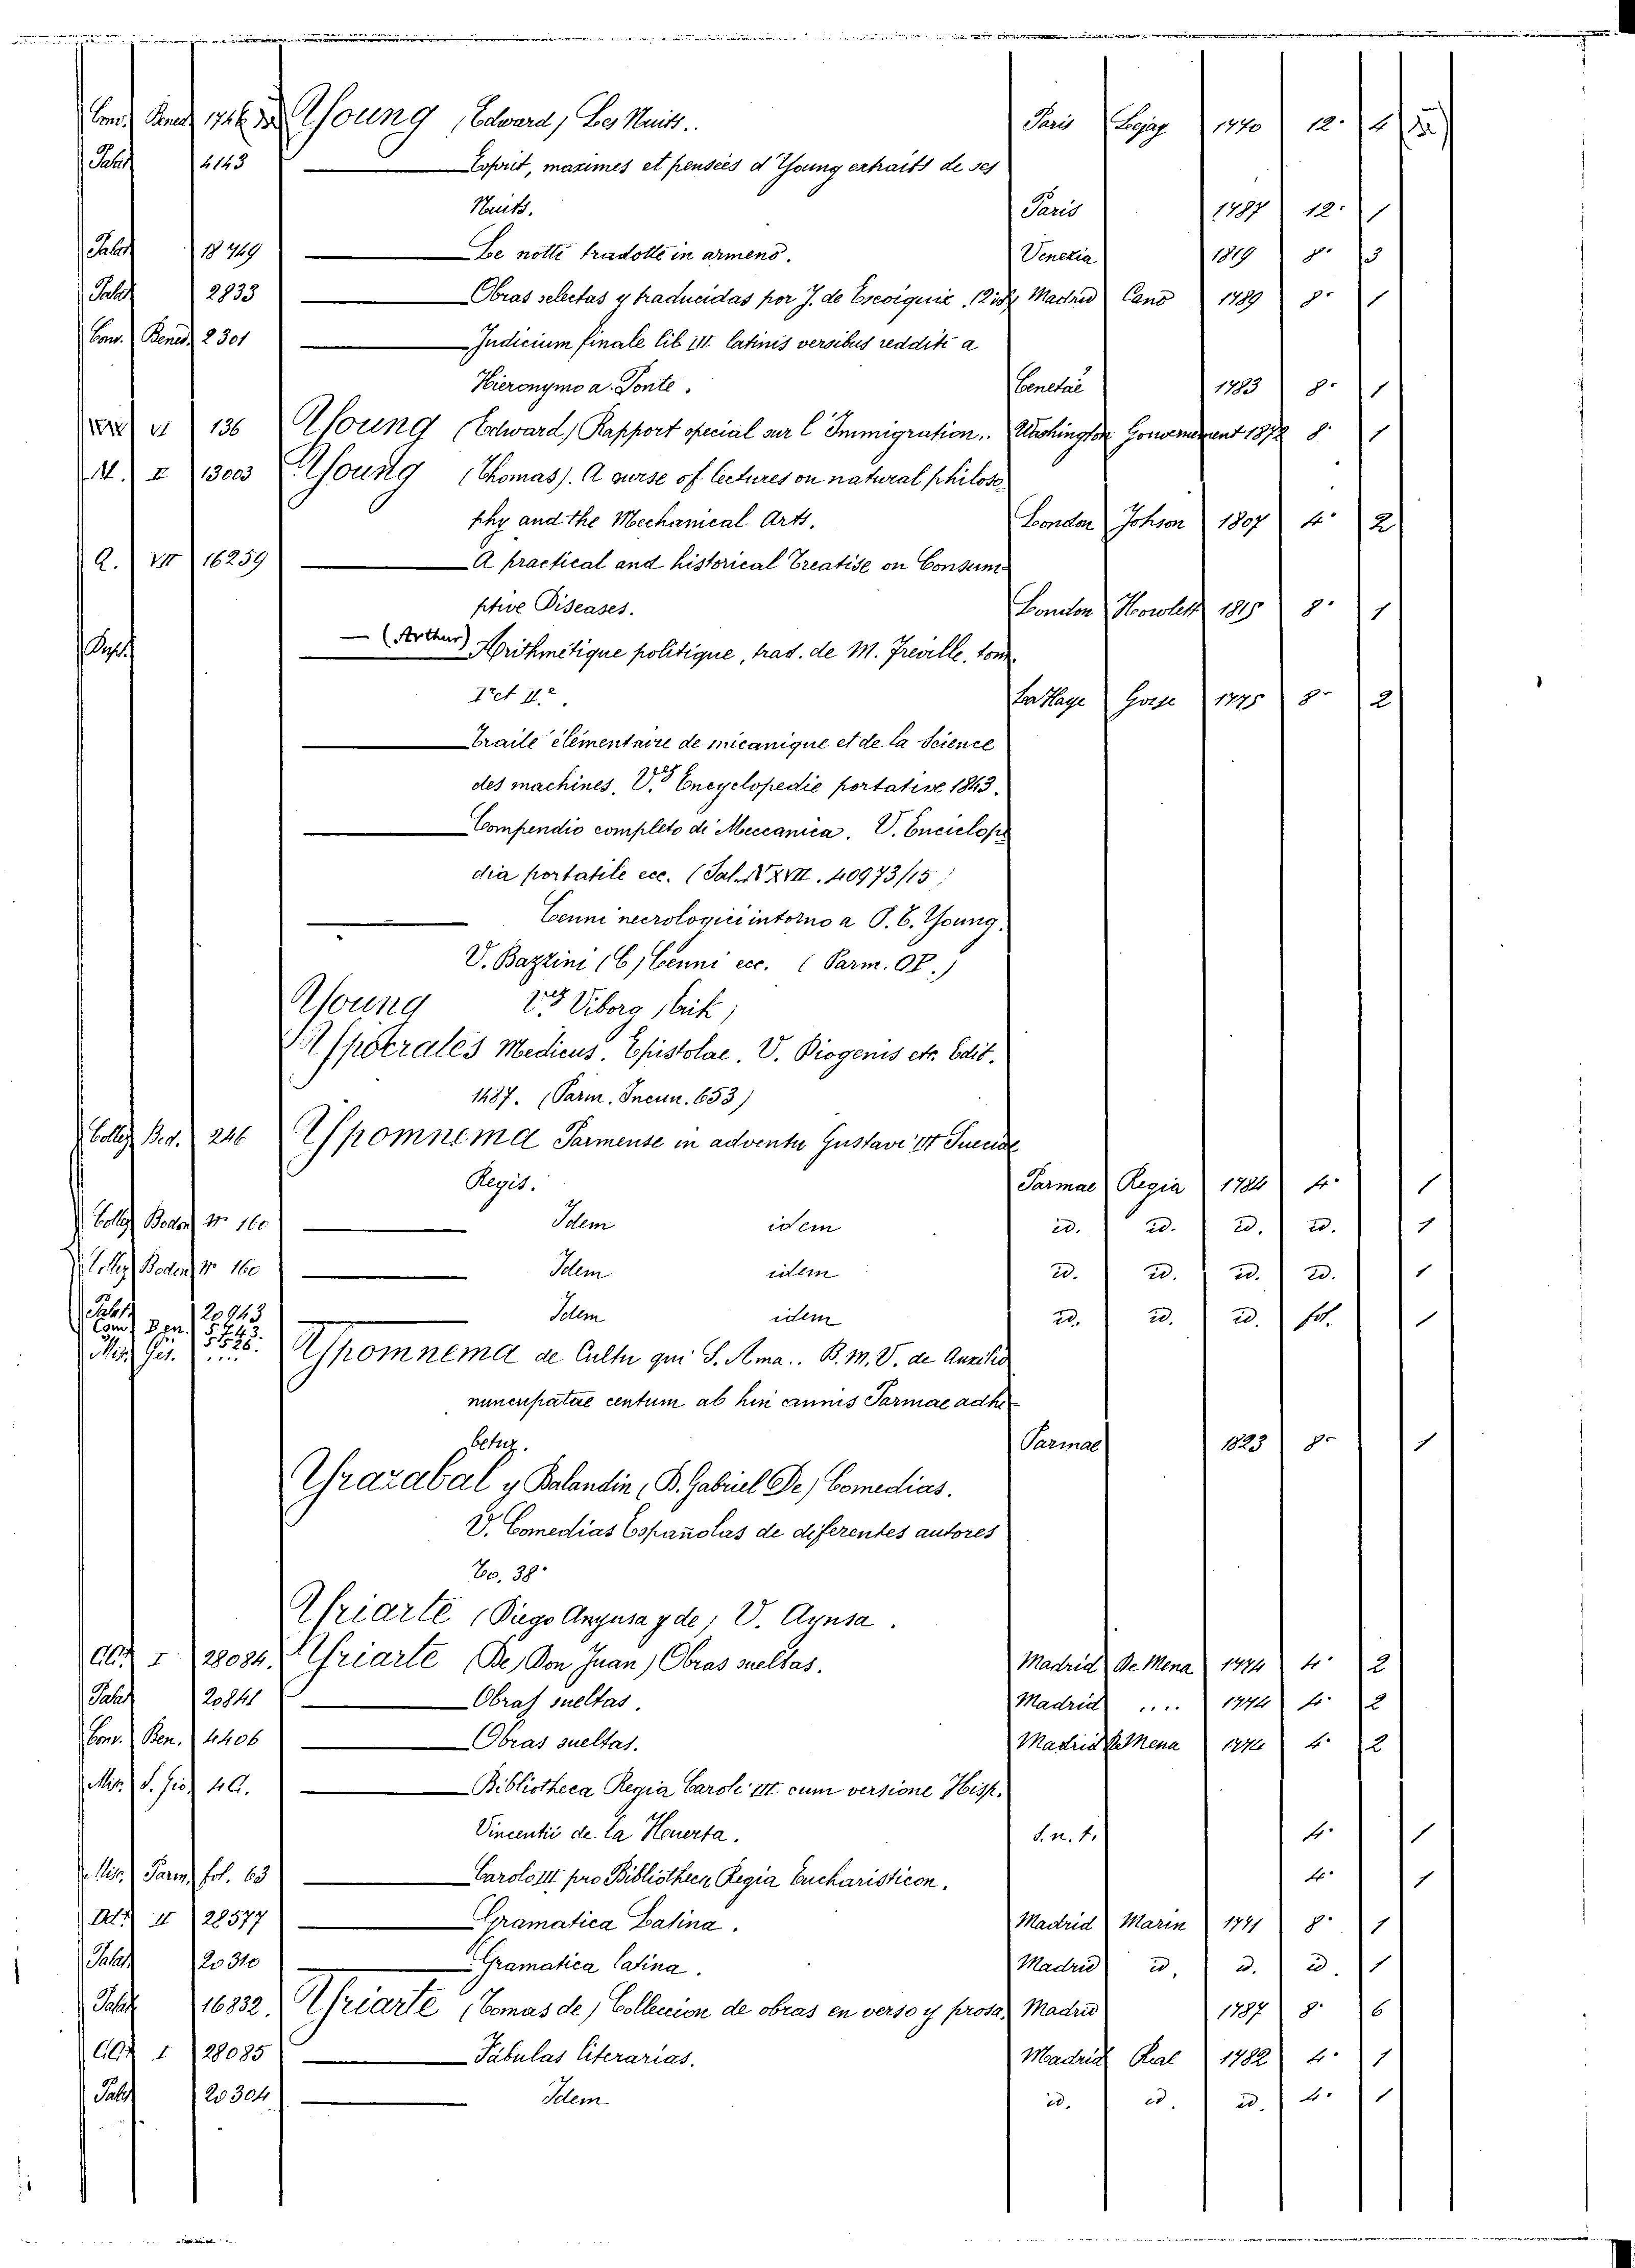 Young (Edward) Les Nuits.. Paris Lejay 1770 12.° 4
Palat 4143 Esprit, maximes et pensées d'Young extraits de ses
Nuits. Paris 1787 12.° 1
Palat 18749 Le notti tradotte in armeno. Venezia 1819 8° 3
Palat 2833 Obras selectas y traducidas por J. de Escoiquiz, Madrid Cano 1789 8° 1
Conv. Bened. 2301 Judicium finale lib III. latinis versibus redditi a
Hieronymo a. Ponte. Cenetae 1783 8° 1
VI 136 Young (Edward) Rapport special sur l'Immigration.. Washington Gouvernement 1872 8° 1
M. I 13003 Young (Thomas). A curse of lectures on natural philoso
phy and the Mechanical Arts. London Johson 1807 4° 2
Q. VII 16259 A practical and historical Treatise on Consum-
ptive Diseases. London Howlett 1815 8° 1
— (Arthur) Arithmétique politique, trad. de M. Freville. tom.
I et II.e La Haye Gosse 1775 8° 2
Traité élémentaire de mécanique et de la Science
des machines. V. Encyclopedie portative 1843.
Compendio completo di Meccanica. V. Enciclope
dia portatile ecc. (Pal. XVII. 40973/15)
Cenni necrologici intorno a P. E. Young.
V. Bazzini (C) Cenni ecc. (Parm. OP.)
Young V. Viborg (Erik)
Ypocrates Medicus. Epistolae. V. Diogenis etc. Edit.
1487. (Parm. Incun. 653)
Colley Bod. 246 Ypomnema Parmense in adventu Gustavi III Sueciae
Regis. Parmae Regia 1784 4° 1
Colley Bodon N° 160 Idem idem id. id. id. id. 1
Colley Bodon N° 160 Idem idem id. id. id. id. 1
Palat 20943 Idem idem id. id. id. fol. 1
Conv. Ben. 5743.
5526. Ypomnema de Cultu qui S. Ima.. B. M. V. de Auxilio
nuncupatae centum ab hin cannis Parmae adhi-
betur. Parmae 1823 8° 1
Yrazabal y Balandin (B. Gabriel De) Comedias.
V. Comedias Españolas de diferentes autores
To. 38°
Yriarte (Diego Anyusa y de) V. Aynsa.
I 28084. Yriarte (De) Don Juan) Obras sueltas. Madrid De Mena 1774 4° 2
Palat 20841 Obras sueltas. Madrid .... 1774 4° 2
Conv. Ben. 4406 Obras sueltas. Madrid De Mena 1774 4° 2
Mis. S. Gio. 40. Bibliotheca Regia Caroli III. cum versione Hisp.
Vincentii de la Huerta. S. n. t. 4° 1
Mis. Parm. fol. 63 Carolo III pro Bibliotheca Regia Eucharisticon. 4° 1
II 28577 Gramatica Latina. Madrid Marin 1771 8° 1
Palat 20310 Gramatica latina. Madrid id. id. id. 1
Palat 16832. Yriarte (Tomas de) Colleccion de obras en verso y prosa. Madrid 1787 8° 6
I 28085 Fabulas literarias. Madrid Real 1782 4° 1
Palat 20304 Idem id. id. id. 4° 1